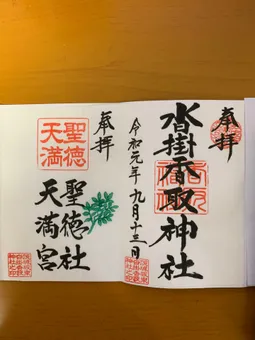 奉拝
沓掛香取神社
令和元年九月十三日
奉拝
聖徳
天満
聖徳社
天満宮